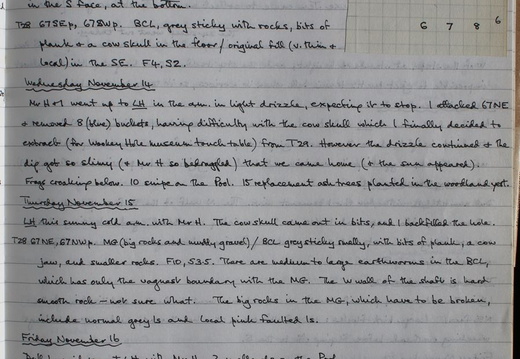 in the S face, at the bottom.
6 7 8 6
T28 67SEp, 67SWp. BCL, grey sticky with rocks, bits of
plank & a cow skull in the floor / original fill (v. thin &
local) in the SE. F4, S2.
Wednesday November 14
Mr H & I went up to LH in the a.m. in light drizzle, expecting it to stop. I attacked 67NE
& removed 8 (blue) buckets, having difficulty with the cow skull which I finally decided to
extract (for Wookey Hole museum touch table) from T29. However the drizzle continued & the
dig got so slimy (& Mr H so bedraggled) that we came home (& the sun appeared).
Frogs croaking below. 10 snipe on the Pool. 15 replacement ash trees planted in the woodland yest.
Thursday November 15
LH this sunny cold a.m. with Mr H. The cow skull came out in bits, and I backfilled the hole.
T28 67NE, 67NWp. MG (big rocks and muddy gravel) / BCL grey sticky smelly, with bits of plank, a cow
jaw, and smaller rocks. F10, S3.5. There are medium to large earthworms in the BCL,
which has only the vaguest boundary with the MG. The W wall of the shaft is hard
smooth rock – not sure what. The big rocks in the MG, which have to be broken,
include normal grey ls and local pink faulted ls.
Friday November 16
with Mr H. the Pool